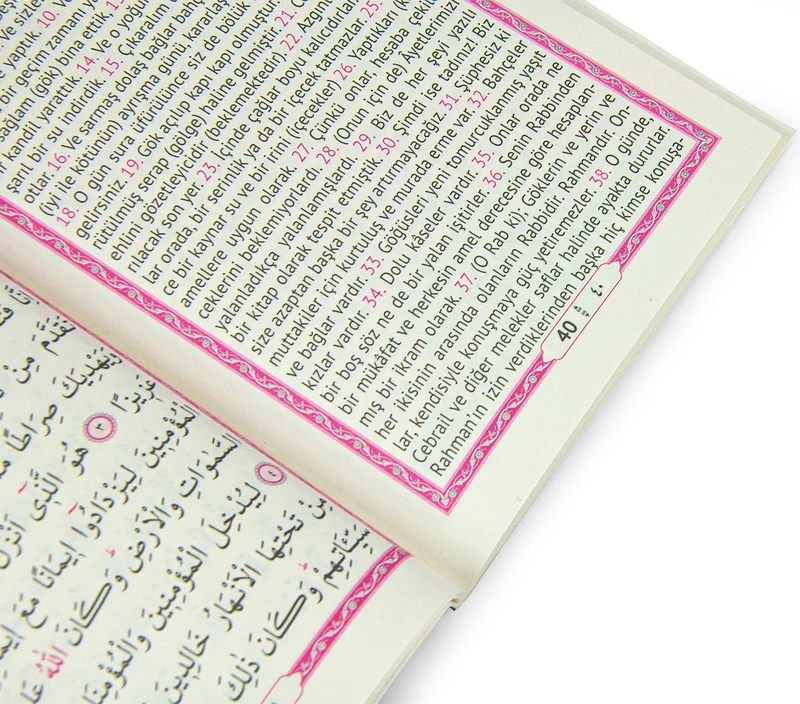 yaptık. 10. V
bina ettik, 13.
kandil yarattık. 14. Ve o yoğu
şarıl bir su indirdik. 15. Çıkaralım di
otlar. 16. Ve sarmaş dolaş bağlar bahç
(iyi ile kötünün) ayrışma günü, kararlaş
18. O gün sura üfürülünce siz de bölük
gelirsiniz. 19. Gök açılıp kapı kapı olmuştur.
rütülmüş serap (gölge) haline gelmiştir. 21. C
ehlini gözetleyicidir (beklemektedir). 22. Azgın
rılacak son yer. 23. İçinde çağlar boyu kalıcıdırlar
lar orada, bir serinlik ya da bir içecek tatmazlar. 25.
ce bir kaynar su ve irini (içecekler). 26. Yaptıkları (k
amellere uygun olarak. 27. Çünkü onlar, hesaba çekil
çeklerini beklemiyorlardı. 28. (Onun için de) Âyetlerimizi
yalanladıkça yalanlamışlardı. 29. Biz de her şeyi yazılı
bir kitap olarak tespit etmiştik. 30. Şimdi ise tadınız! Biz
size azaptan başka bir şey artırmayacağız. 31. Şüphesiz ki
muttakiler için kurtuluş ve murada erme var. 32. Bahçeler
ve bağlar vardır. 33. Göğüsleri yeni tomurcuklanmış yaşıt
kızlar vardır. 34. Dolu kâseler vardır. 35. Onlar orada ne
bir boş söz ne de bir yalan işitirler. 36. Senin Rabbinden
bir mükâfat ve herkesin amel derecesine göre hesaplan
mış bir ikram olarak. 37. (O Rab ki); Göklerin ve yerin ve
her ikisinin arasında olanların Rabbidir. Rahmandır. On-
lar, kendisiyle konuşmaya güç yetiremezler. 38. O günde,
Cebrail ve diğer melekler saflar halinde ayakta dururlar.
Rahman'ın izin verdiklerinden başka hiç kimse konuşa-
40 ٤٠
تَقَدَّمَ مِنْ
وَيَهْدِيَكَ صِرَاطًا
عَزِيزًا ٣ هُوَ الَّذِي اَنْزَلَ
الْمُؤْمِنِينَ لِيَزْدَادُوا اِيمَانًا مَعَ
السَّمٰوَاتِ وَالْاَرْضِ وَكَانَ اللّٰهُ
٤ لِيُدْخِلَ الْمُؤْمِنِينَ وَالْمُؤْمِنَا
مِنْ تَحْتِهَا الْاَنْهَارُ خَالِدِينَ
سَيِّئَاتِهِمْ وَكَانَ ذٰلِكَ